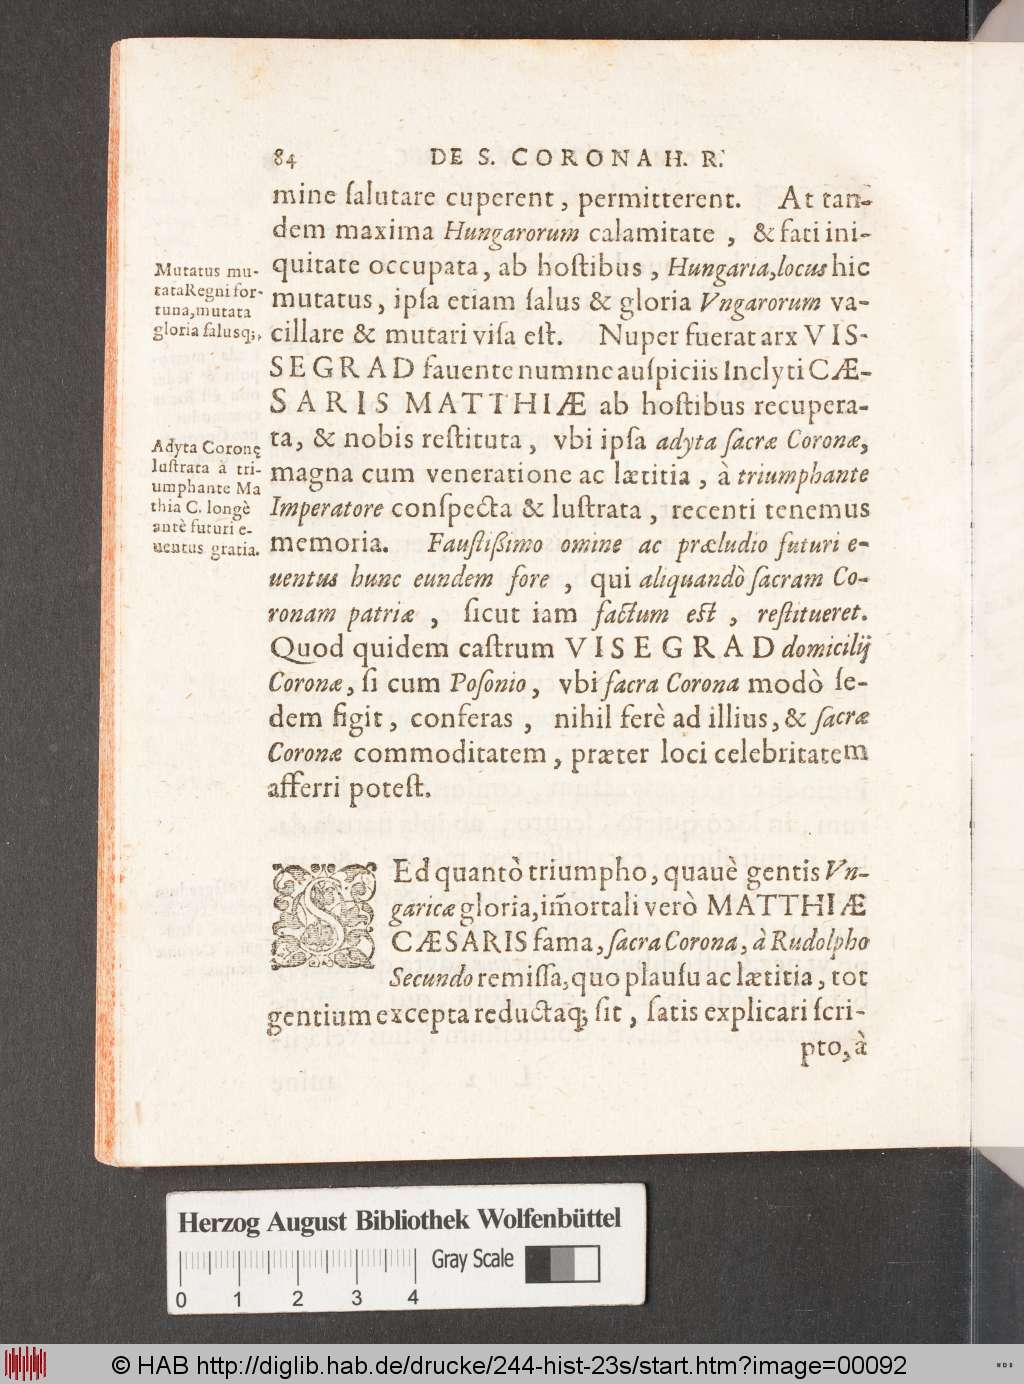 84 DE S. CORONA H. R.
mine ſalutare cuperent, permitterent. At tan-
dem maxima Hungarorum calamitate, & fati ini-
quitate occupata, ab hoſtibus, Hungaria, locus hic
mutatus, ipſa etiam ſalus & gloria Vngarorum va-
cillare & mutari viſa eſt. Nuper fuerat arx VIS-
SEGRAD fauente numine auſpiciis Inclyti CÆ-
SARIS MATTHIÆ ab hoſtibus recupera-
ta, & nobis reſtituta, vbi ipſa adyta ſacræ Coronæ,
magna cum veneratione ac lætitia, à triumphante
Imperatore conſpecta & luſtrata, recenti tenemus
memoria. Fauſtißimo omine ac præludio futuri e-
uentus hunc eundem fore, qui aliquandò ſacram Co-
ronam patriæ, ſicut iam factum eſt, reſtitueret.
Quod quidem caſtrum VISEGRAD domicilij
Coronæ, ſi cum Poſonio, vbi ſacra Corona modò ſe-
dem figit, conferas, nihil ferè ad illius, & ſacræ
Coronæ commoditatem, præter loci celebritatem
afferri poteſt.
Mutatus mu-
tata Regni for-
tuna, mutata
gloria ſalusq;,
Adyta Coronę
luſtrata à tri-
umphante Ma
thia C. longè
antè futuri e-
uentus gratia.
SEd quantò triumpho, quauè gentis Vn-
garicæ gloria, im̃ortali verò MATTHIÆ
CÆSARIS fama, ſacra Corona, à Rudolpho
Secundo remiſſa, quo plauſu ac lætitia, tot
gentium excepta reductaq; ſit, ſatis explicari ſcri-
pto, à
Herzog August Bibliothek Wolfenbüttel
Gray Scale
0 1 2 3 4
© HAB http://diglib.hab.de/drucke/244-hist-23s/start.htm?image=00092